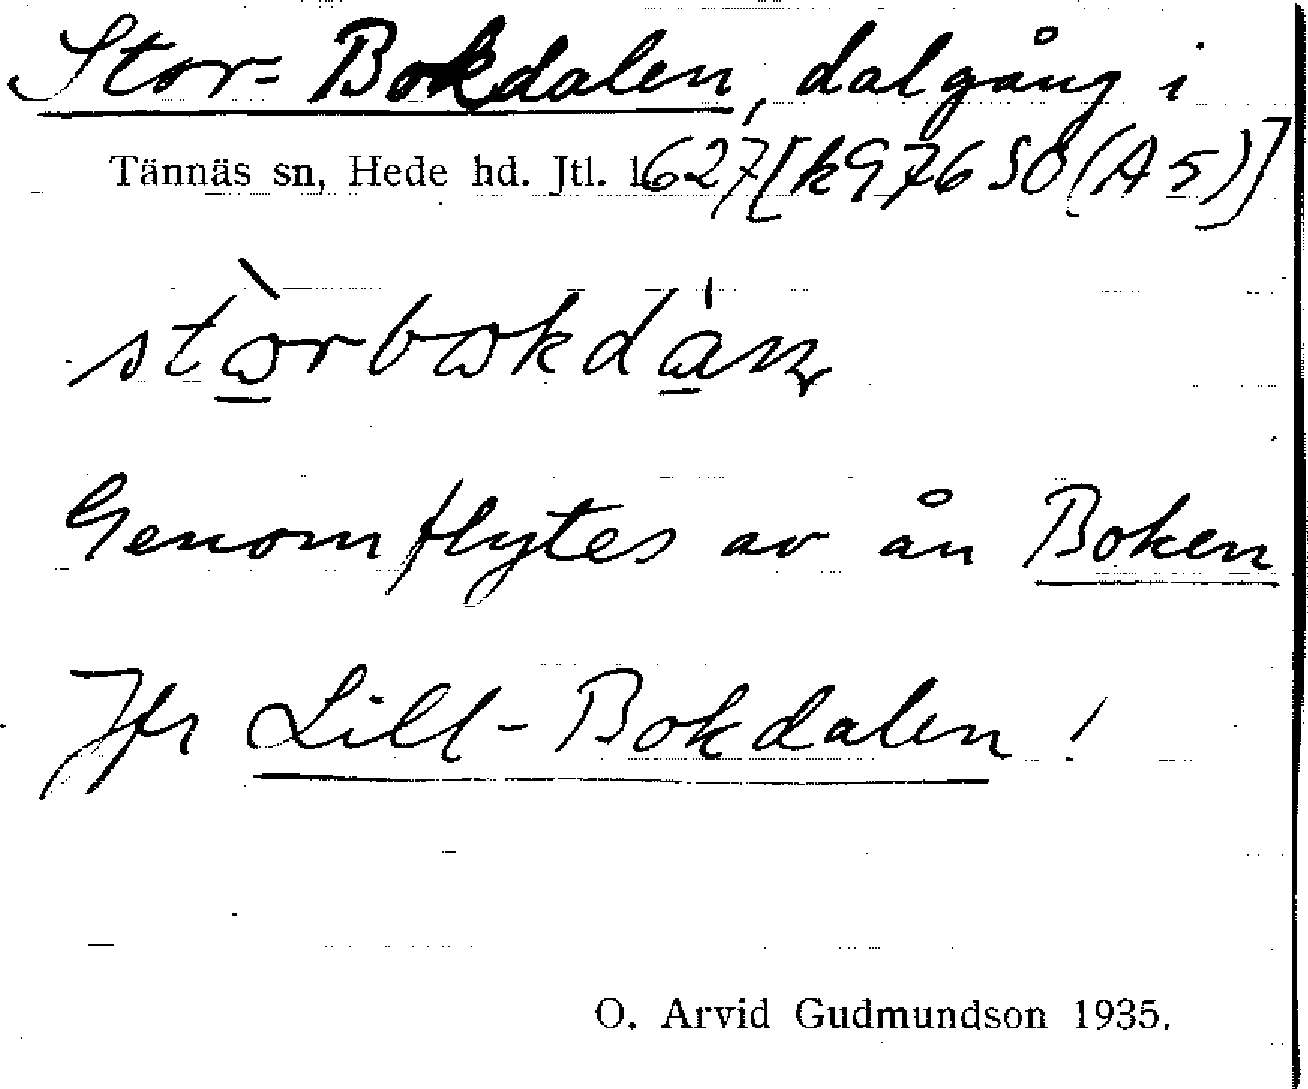 Stor-Bokdalen, dalgång i
Tännäs sn, Hede hd. Jtl. 1627 [k97650 (A5)]
Genomflytes av ån Boken
Jfr Lill-Bokdalen!
O. Arvid Gudmundson 1935.